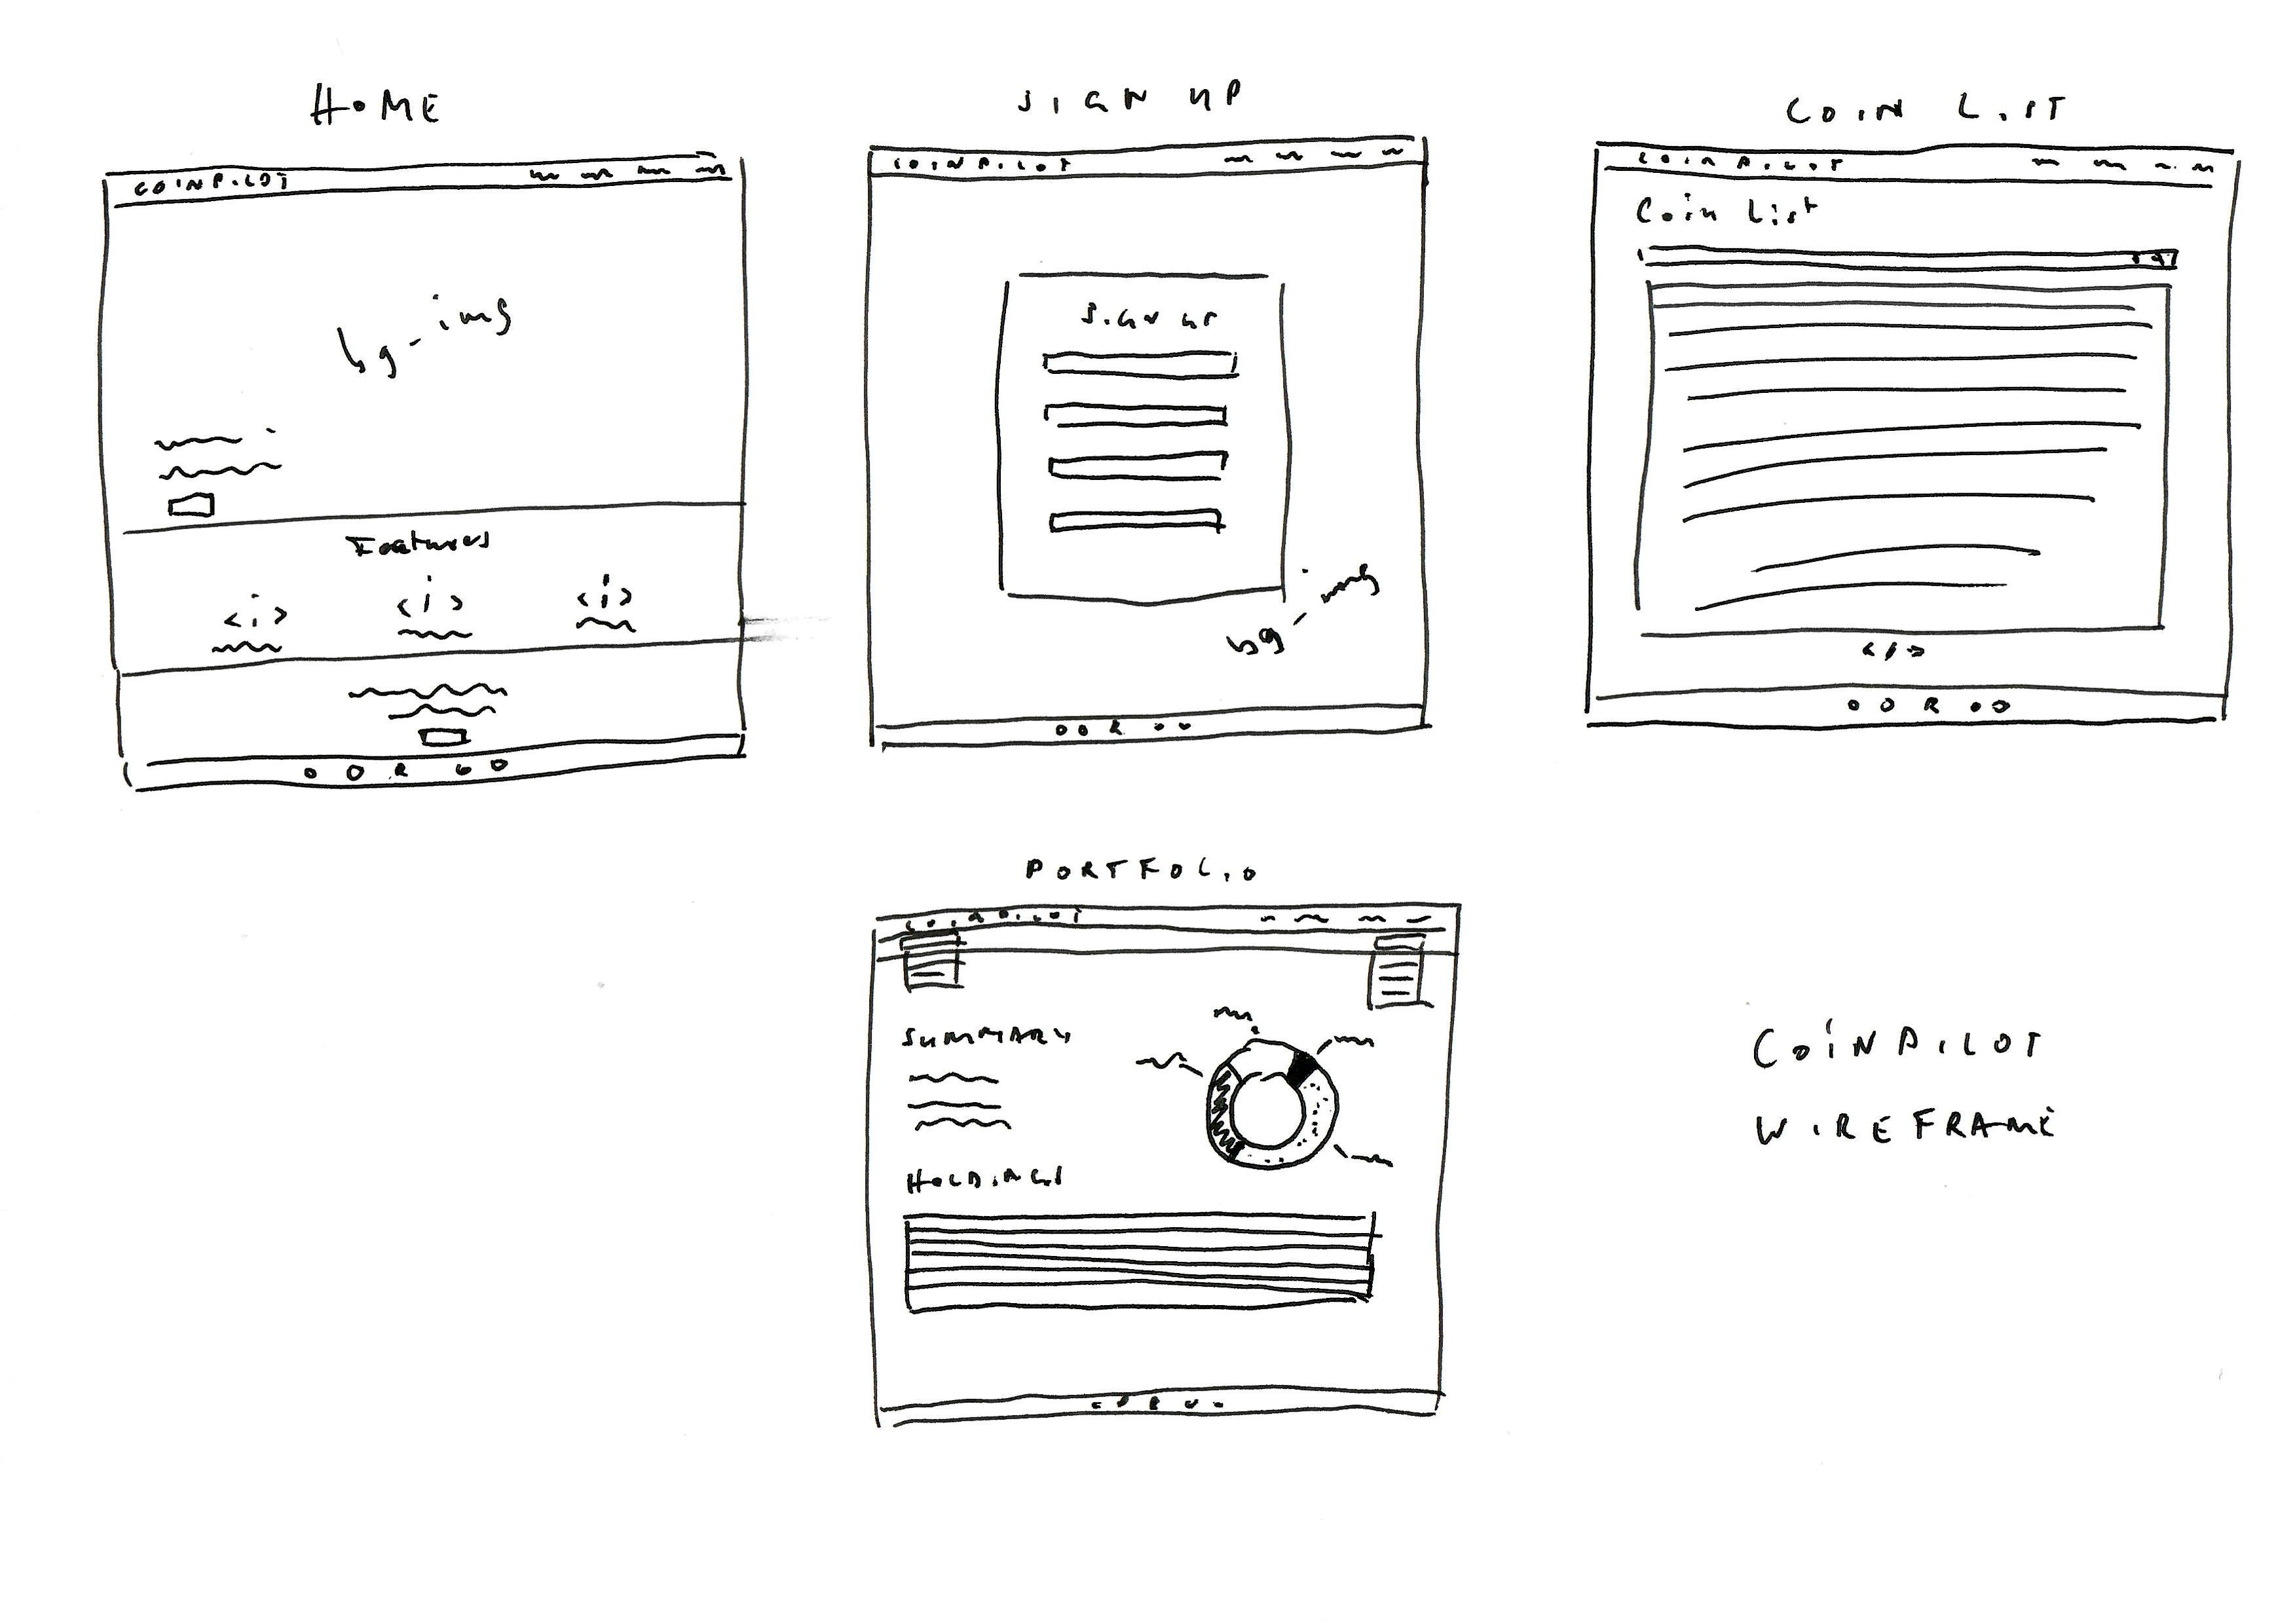 HOME
COINPILOT
bg-img
Features
<i> <i> <i>
SIGN UP
COINPILOT
SIGN UP
bg-img
COIN LIST
COINPILOT
Coin List
PORTFOLIO
COINPILOT
SUMMARY
HOLDINGS
COINPILOT
WIREFRAME